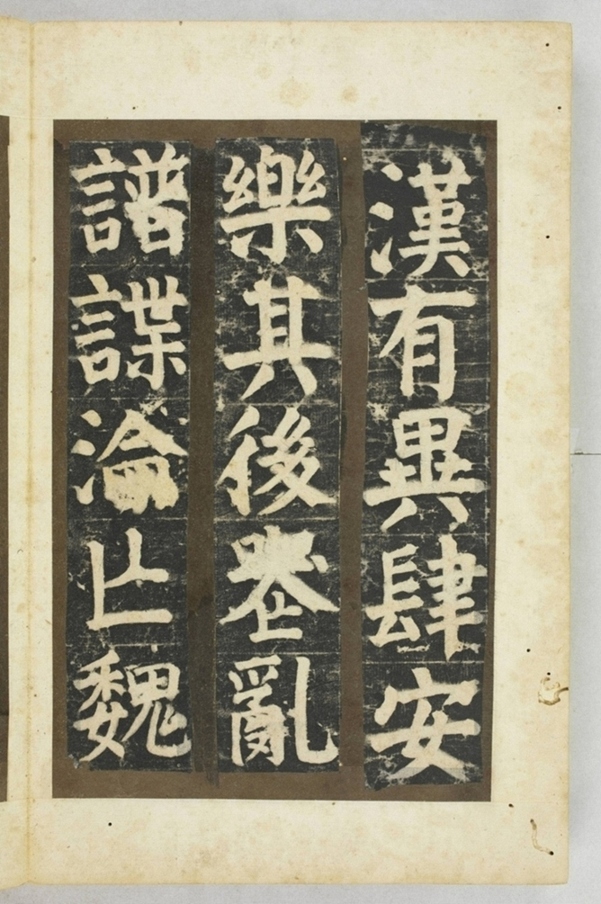 漢有異肆安
樂其後喪亂
譜諜淪亡魏